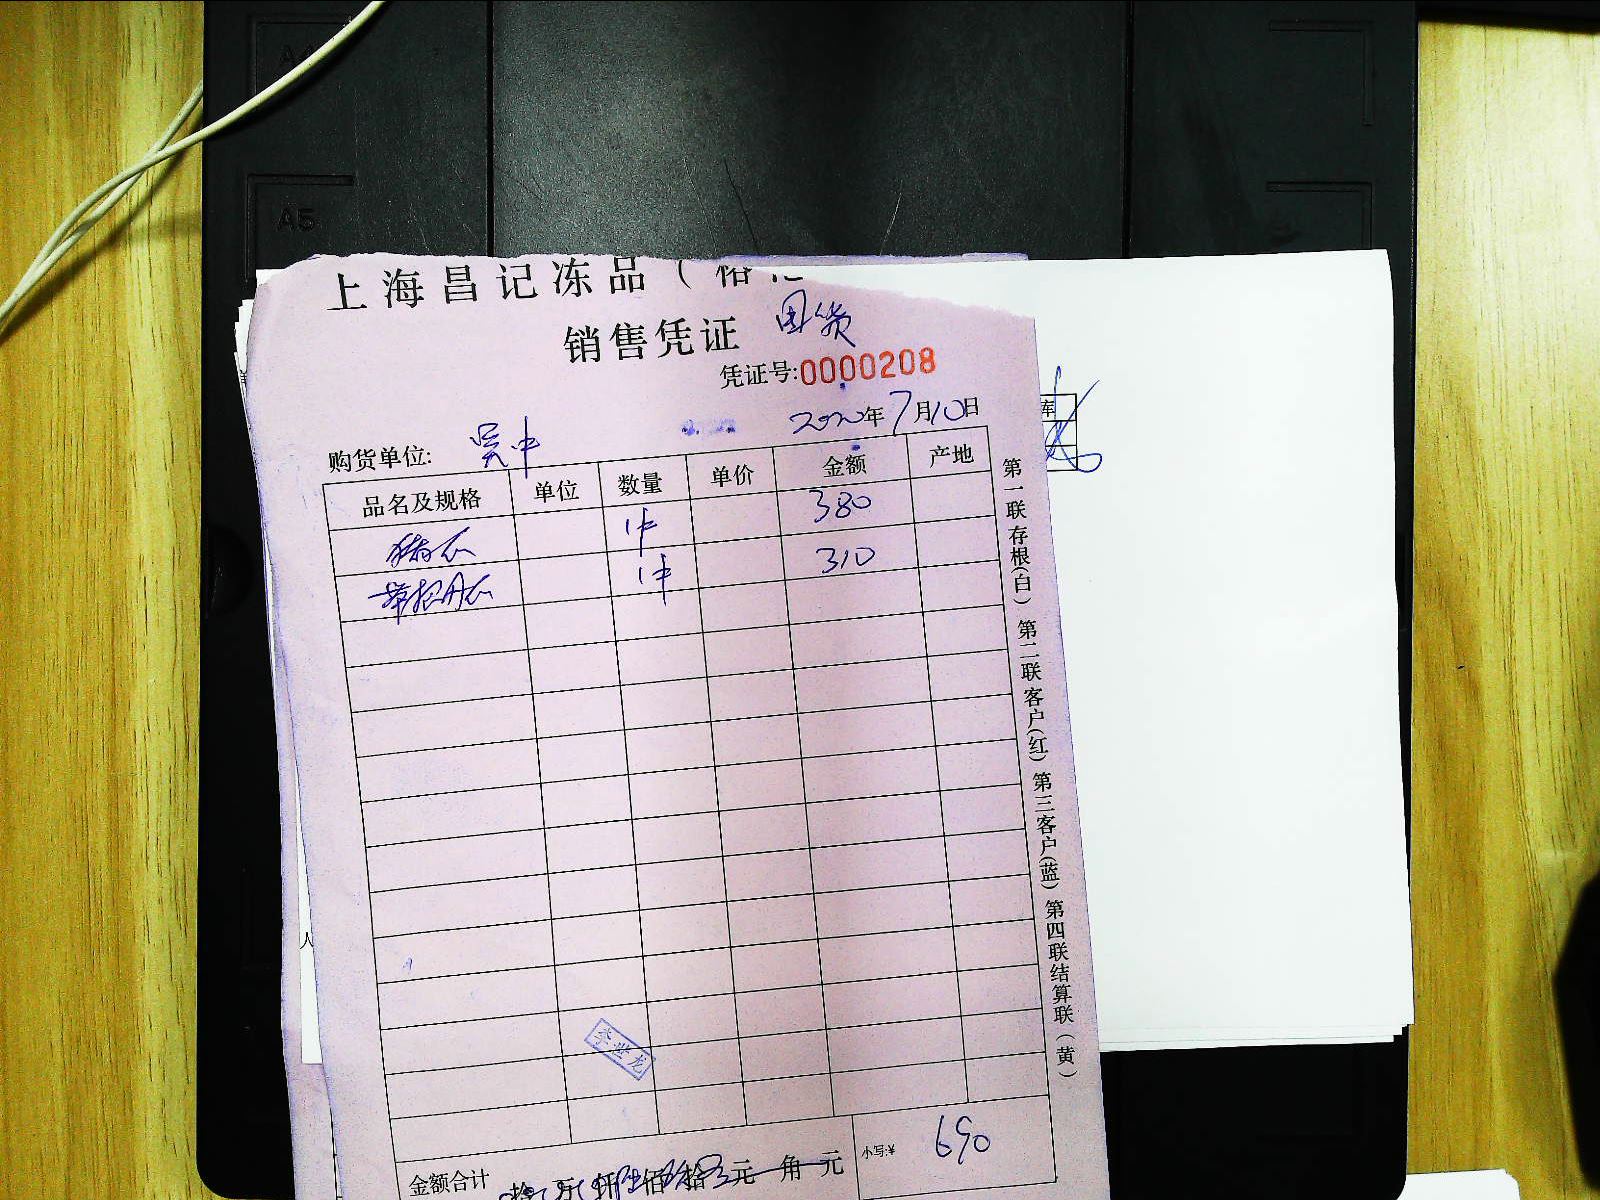 A5
上海昌记冻品（
销售凭证
凭证号:0000208
2020年7月10日
购货单位: 吴中
品名及规格 单位 数量 单价 金额 产地
1件 380
1件 310
第一联存根(白) 第二联客户(红) 第三客户(蓝) 第四联结算联（黄）
李世龙
金额合计 拾 万 仟 佰 拾 元 角 元 小写:¥ 690
库
人